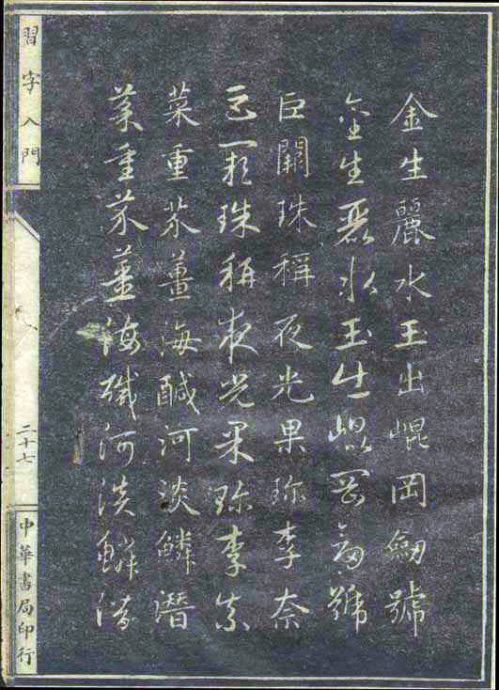 金生麗水玉出崐岡劒號
金生麗水玉出崐岡劒號
巨闕珠稱夜光果珎李柰
巨闕珠稱夜光果珎李柰
菜重芥薑海鹹河淡鱗潛
菜重芥薑海鹹河淡鱗潛
習字入門
二十七
中華書局印行